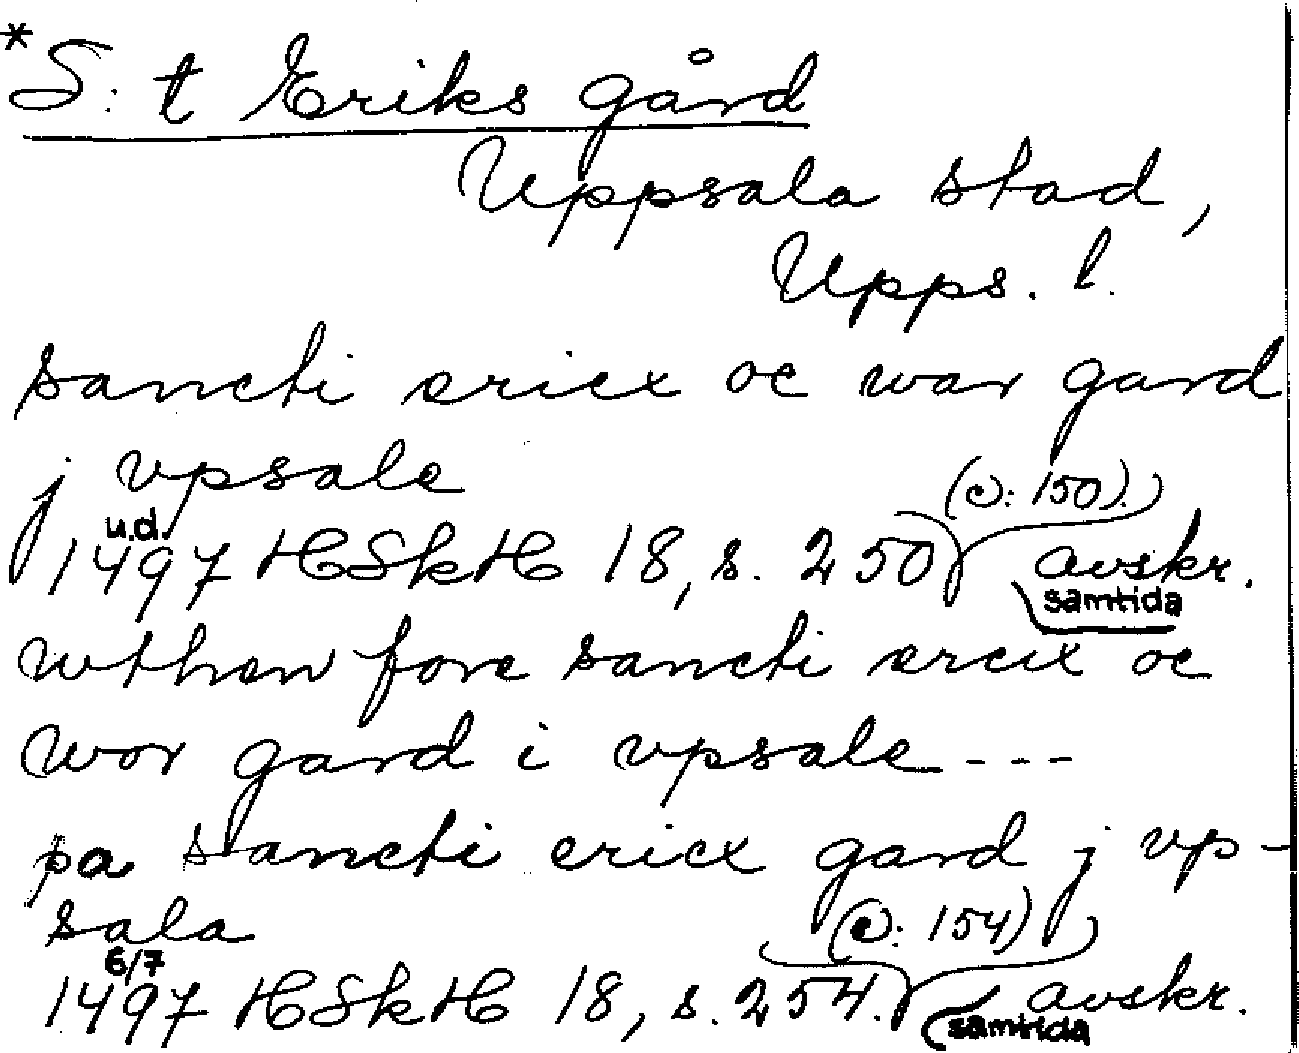 *S:t Eriks gård
Uppsala stad,
Upps. l.
sancti ericx oc war gard
j vpsale
(c): 150).
u.d.
1497 HSkH 18, s. 250 avskr.
samtida
wthen fore sancti ercix oc
wor gard i vpsale ---
pa sancti ericx gard j vp-
sala
(c): 154)
6/7
1497 HSkH 18, s. 254. avskr.
samtida